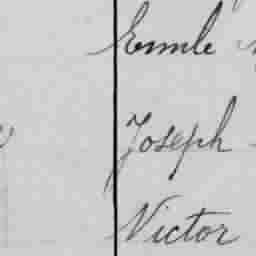 Emile
Joseph
Victor